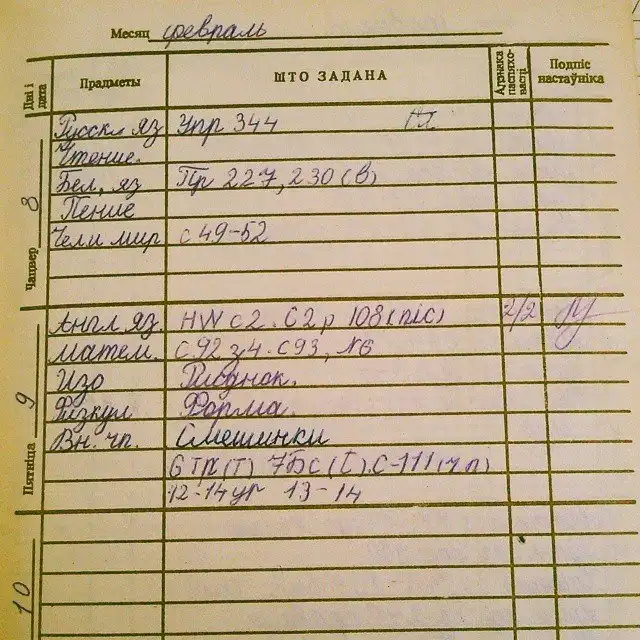 Месяц февраль
Дні і дата Прадметы ШТО ЗАДАНА Адзнака паспяховасці Подпіс настаўніка
Чацвер 8
Русск яз Упр 344
Чтение.
Бел. яз Пр 227, 230 (в)
Пение
Чел и мир с 49-52
Пятніца 9
Англ яз. HW с2. С2 р 108 (піс) 2/2
Матем. С92 з4. С93, №6
Изо Рисунок.
Физкул Форма.
Вн. чт. Смешинки
6 ТП (Т) 7БС (С). С-111 (ч п)
12-14 ур 13-14
10